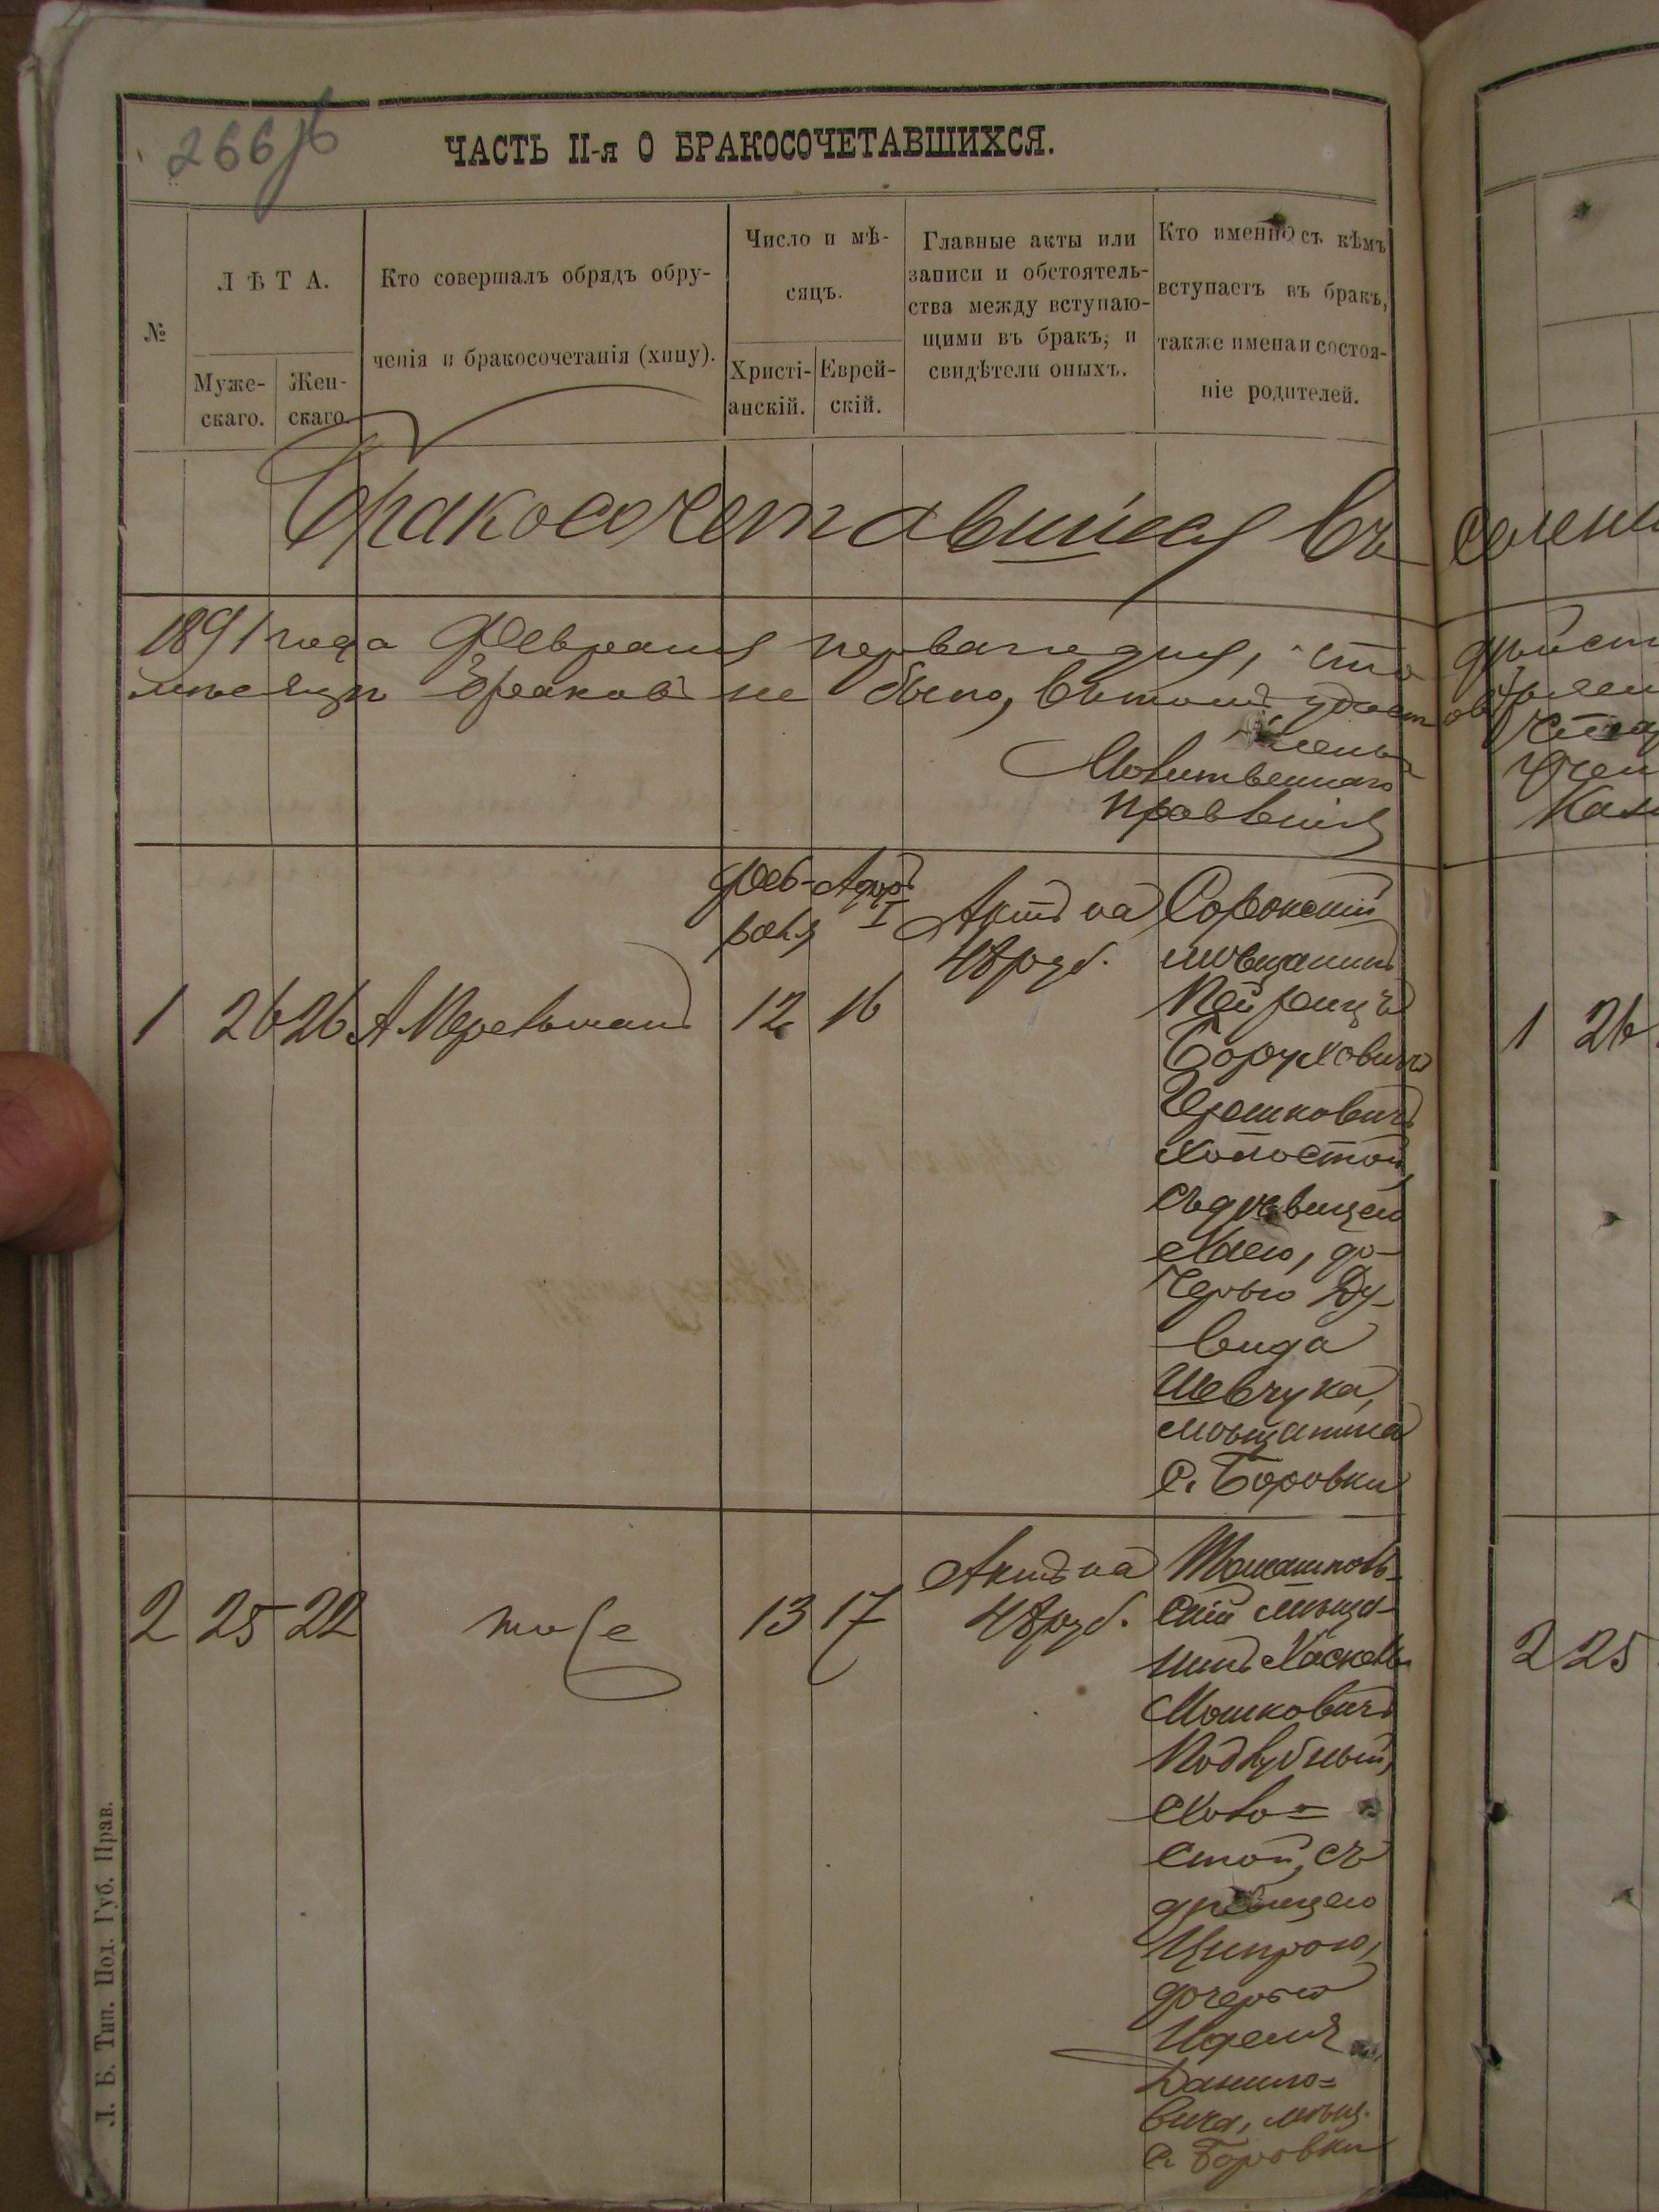 266 об
ЧАСТЬ II-я О БРАКОСОЧЕТАВШИХСЯ.
№
ЛѢТА.
Муже-
скаго.
Жен-
скаго.
Кто совершалъ обрядъ обру-
ченія и бракосочетанія (хипу).
Число и мѣ-
сяцъ.
Христі-
анскій.
Еврей-
скій.
Главные акты или
записи и обстоятель-
ства между вступаю-
щими въ бракъ, и
свидѣтели оныхъ.
Кто именно съ кѣмъ
вступаетъ въ бракъ,
также имена и состоя-
ніе родителей.
Бракосочетавшійся въ
1891 года Февраля перваго дня, что
мѣсяцѣ браковъ не было, въ томъ удост
Члены
Молитвеннаго
Правленія
Фев-
раля
Адаръ
I
1
26
26
А. Перельманъ
12
16
Актъ на
48 руб.
Сорокскій
мѣщанинъ
Пейрецъ
Боруховичъ
Гершковичъ
холостой,
съ дѣвицею
Хаею, до-
черью Ду-
вида
Шевчука,
мѣщанина
с. Боровки
2
25
22
тоже
13
17
Актъ на
48 руб.
Томашполь-
скій мѣща-
нинъ Хаскель
Мошковичъ
Поддубный,
холо-
стой, съ
дѣвицею
Ципрою,
дочерью
Иделя
Данило-
вича, мѣщ.
с. Боровки
Л. Б. Тип. Под. Губ. Прав.
1
26
2
25